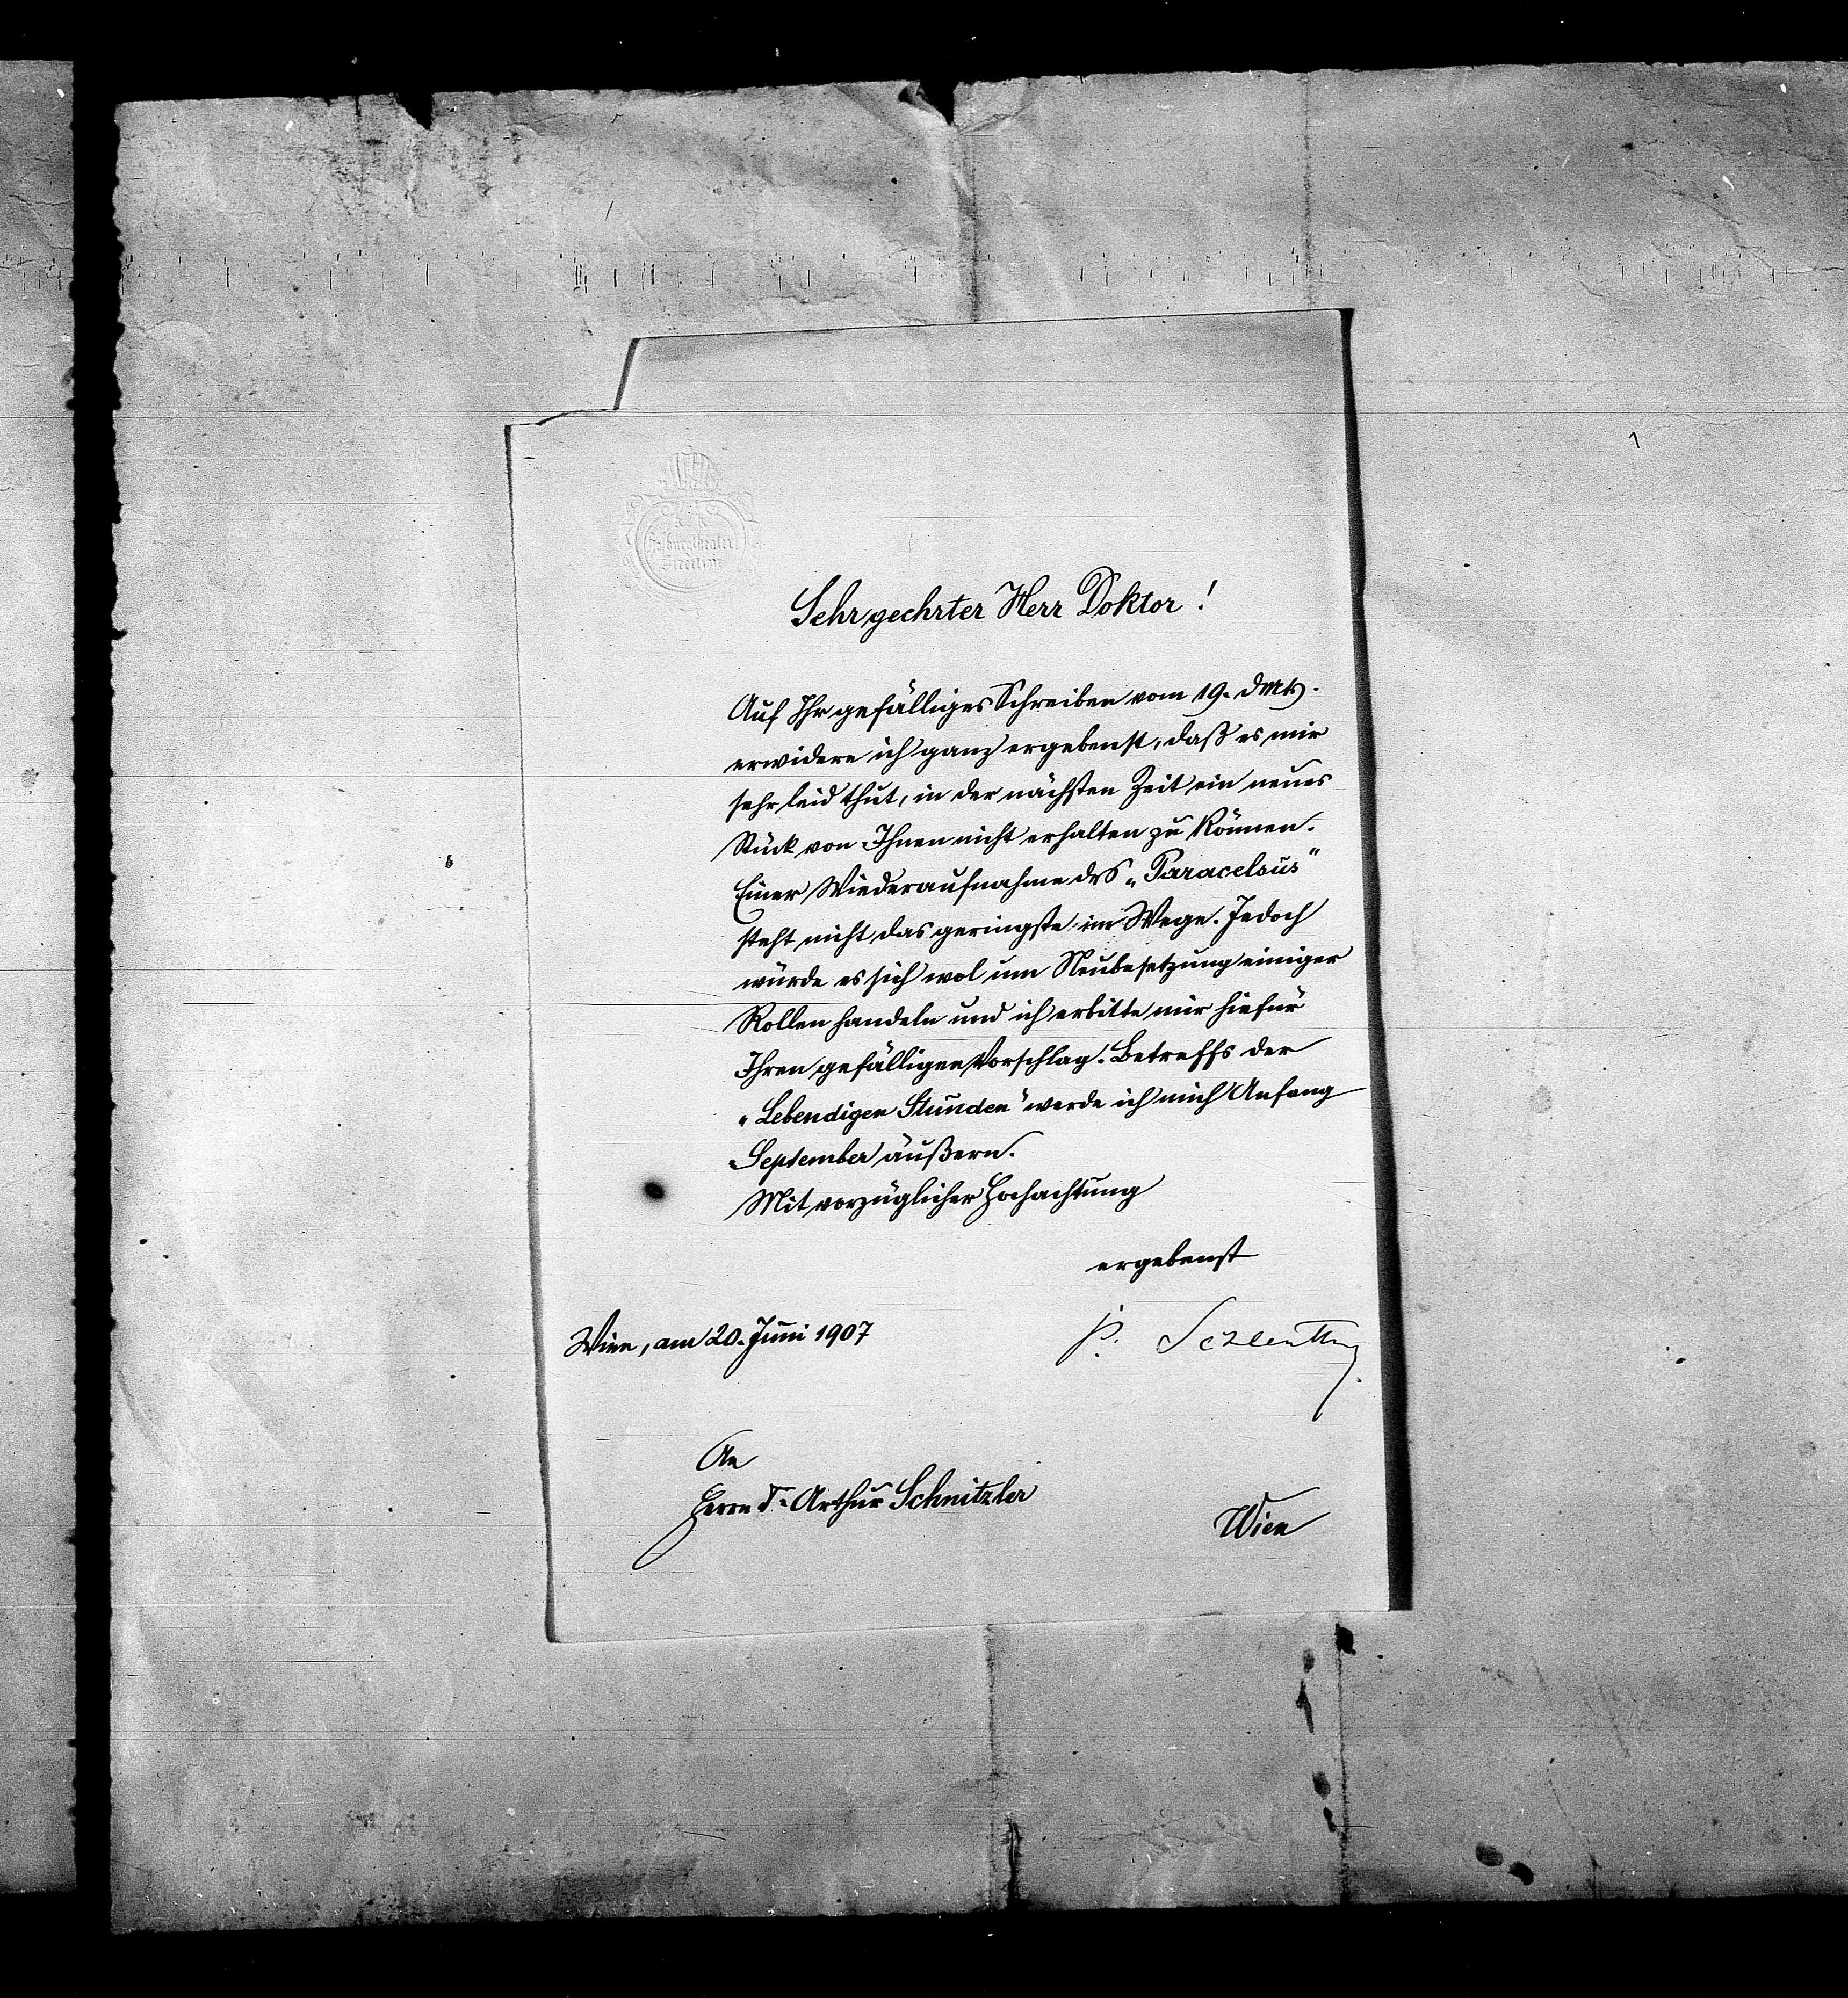 K. K.
Hofburgtheater
Direction
Sehr geehrter Herr Doktor!
Auf Ihr gefälliges Schreiben vom 19. d Mts.
erwidere ich ganz ergebenst, daß es mir
sehr leid thut, in der nächsten Zeit ein neues
Stück von Ihnen nicht erhalten zu können.
Einer Wiederaufnahme des „Paracelsus"
steht nicht das geringste im Wege. Jedoch
würde es sich wol um Neubesetzung einiger
Rollen handeln und ich erbitte mir hiefür
Ihren gefälligen Vorschlag. Betreffs der
„Lebendigen Stunden" werde ich mich Anfang
September äußern.
Mit vorzüglicher Hochachtung
ergebenst
Wien, am 20. Juni 1907
P. Schlenther
An
Herrn Dr. Arthur Schnitzler
Wien
1